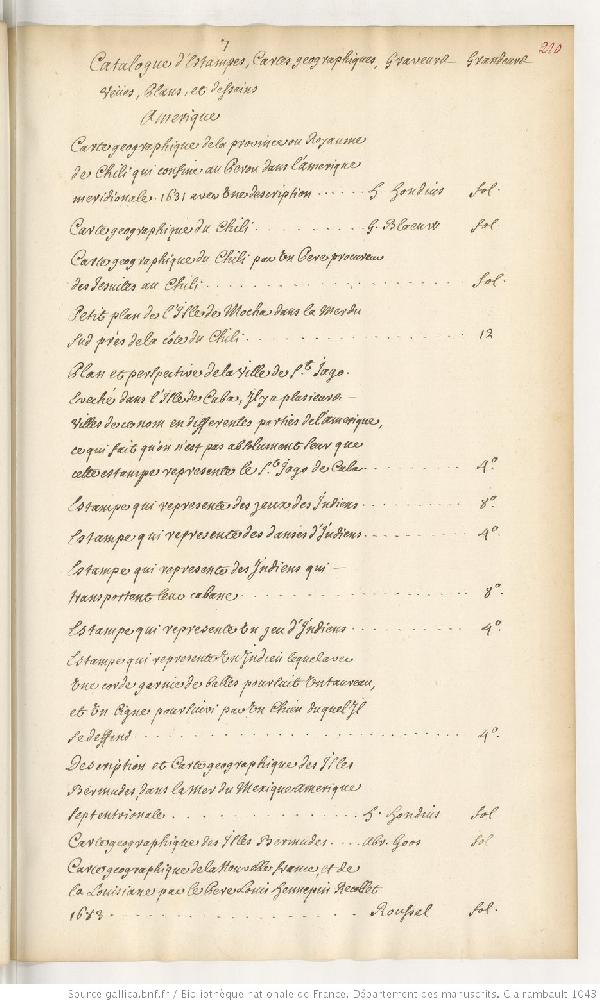 7
210
Catalogue d'Estampes, Cartes geographiques, Graveurs Grandeurs
Vëues, Plans, et desseins
Amerique
Carte geographique de la province ou Royaume
de Chili qui confine au Perou dans l'amerique
meridionale. 1631 avec une description ...... H. Hondius fol.
Carte geographique du Chili ........... G. Blaeuw fol
Carte geographique du Chili par un Pere procureur
des Jesuites au Chili ........................ fol.
Petit plan de l'Isle de Mocha dans la Mer du
Sud près de la côte du Chili .................... 12
Plan et perspective de la Ville de St. Jago.
Eveché dans l'Isle de Cuba, Il y a plusieurs
villes de ce nom en differentes parties de l'amerique,
ce qui fait qu'on n'est pas absolument seur que
cette estampe represente le St. Jago de Cuba .......... 4º
Estampe qui represente des jeux des Indiens .......... 8º.
Estampe qui represente des danses d'Indiens .......... 4º
Estampe qui represente des Indiens qui
transportent leur cabane .................... 8º.
Estampe qui represente un jeu d'Indiens .......... 4º.
Estampe qui represente un Indien lequel avec
une corde garnie de balles poursuit un taureau,
et un Cigne poursuivi par un Chien duquel Il
se deffend .............................. 4º.
Description et Carte geographique des Isles
Bermudes, dans la mer du Mexique amerique
septentrionale .................. H. Hondius fol
Carte geographique des Isles Bermudes .... Abr. Goos fol
Carte geographique de la Nouvelle france, et de
la Louisiane par le Pere Louis Hennepin Recollet
1683 ........................ Roussel fol.
Source gallica.bnf.fr / Bibliothèque nationale de France. Département des manuscrits. Clairambault 1043